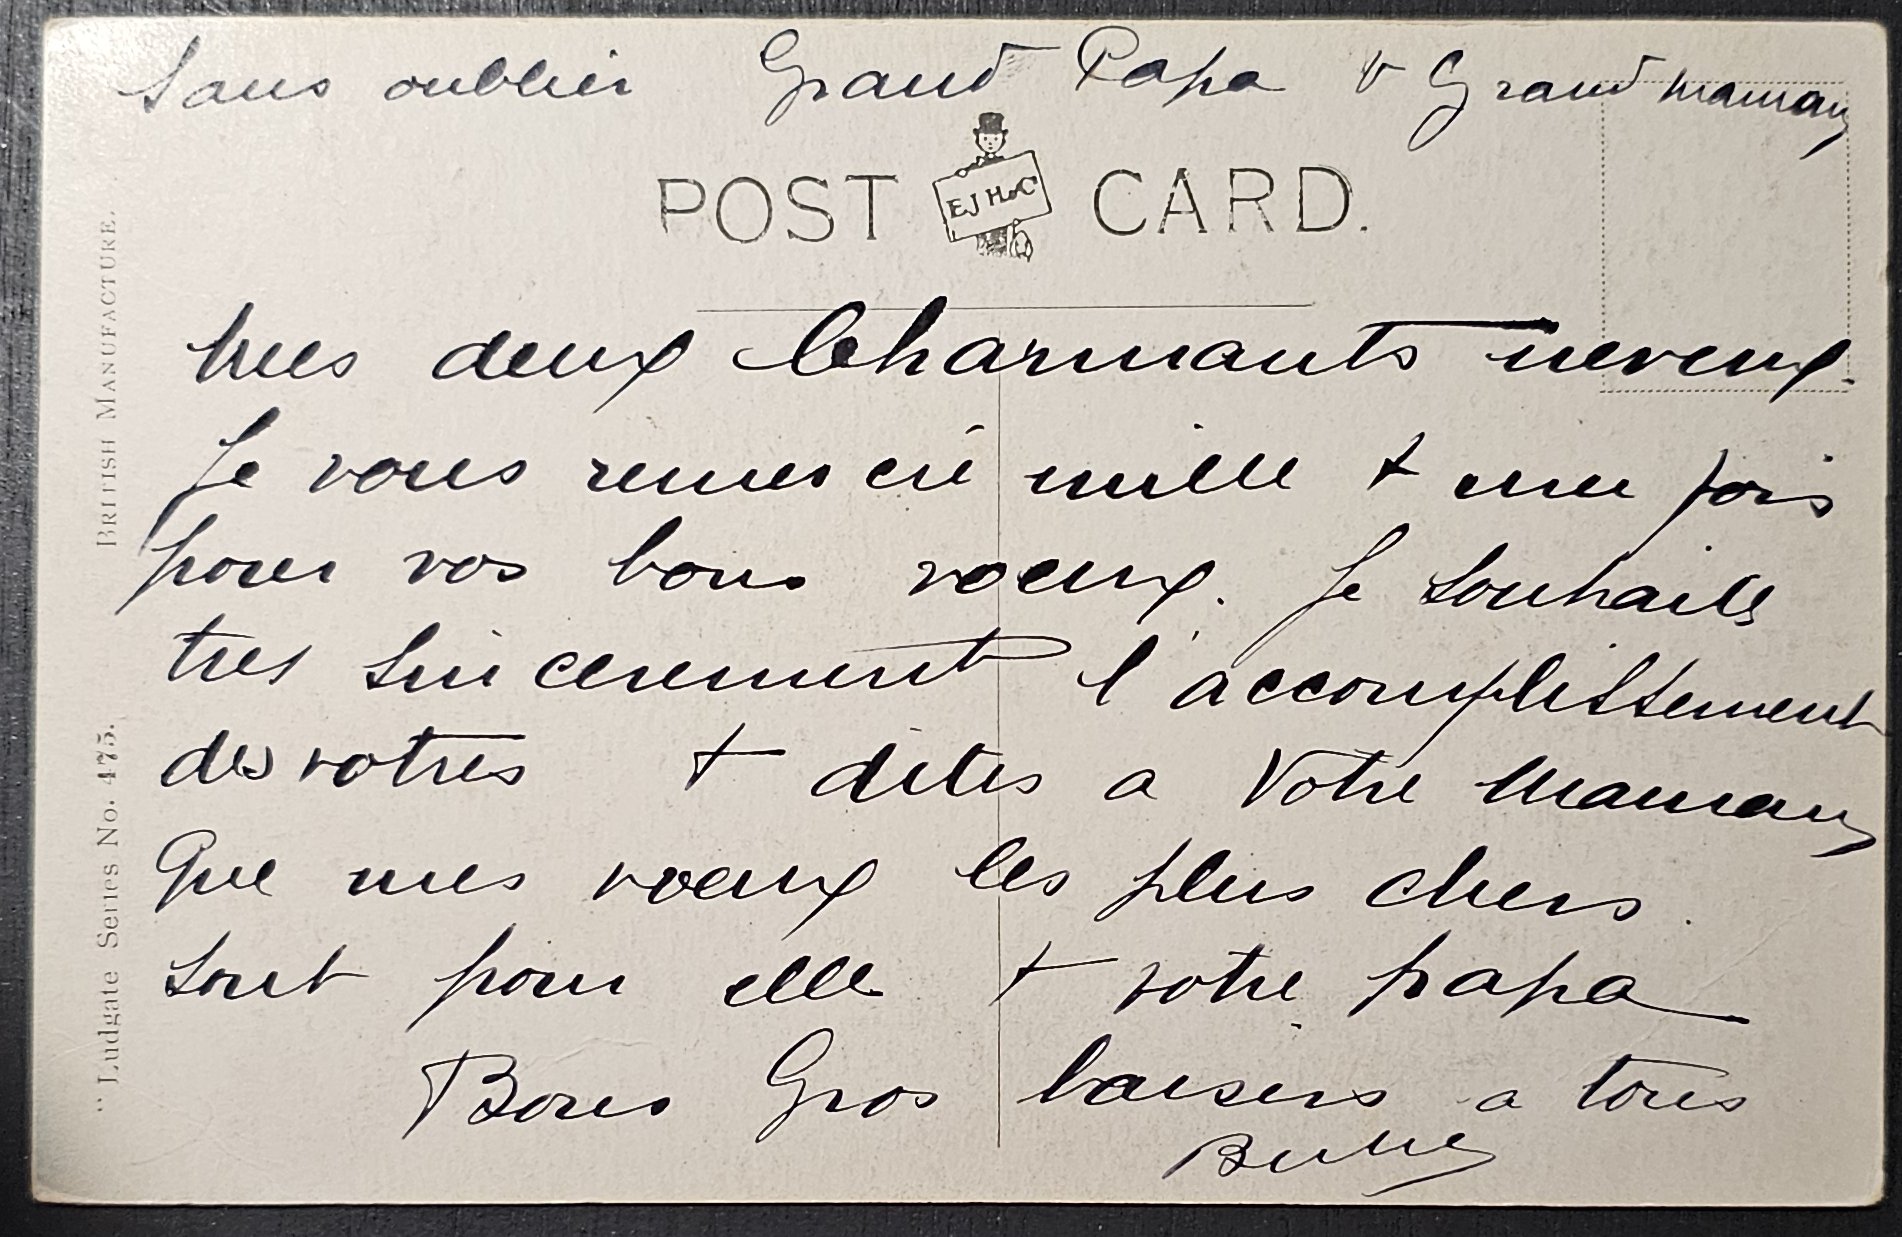 Sans oublier Grand Papa & Grand maman
POST CARD.
E J H & Co
mes deux Charmants neveux.
Je vous remercie mille & une fois
pour vos bons voeux. Je souhaite
tres sincerement l'accomplissement
des votres & dites a Votre Maman
Que mes voeux les plus chers
sont pour elle & votre papa
Bons Gros baisers a tous
"Ludgate Series No. 475. BRITISH MANUFACTURE.